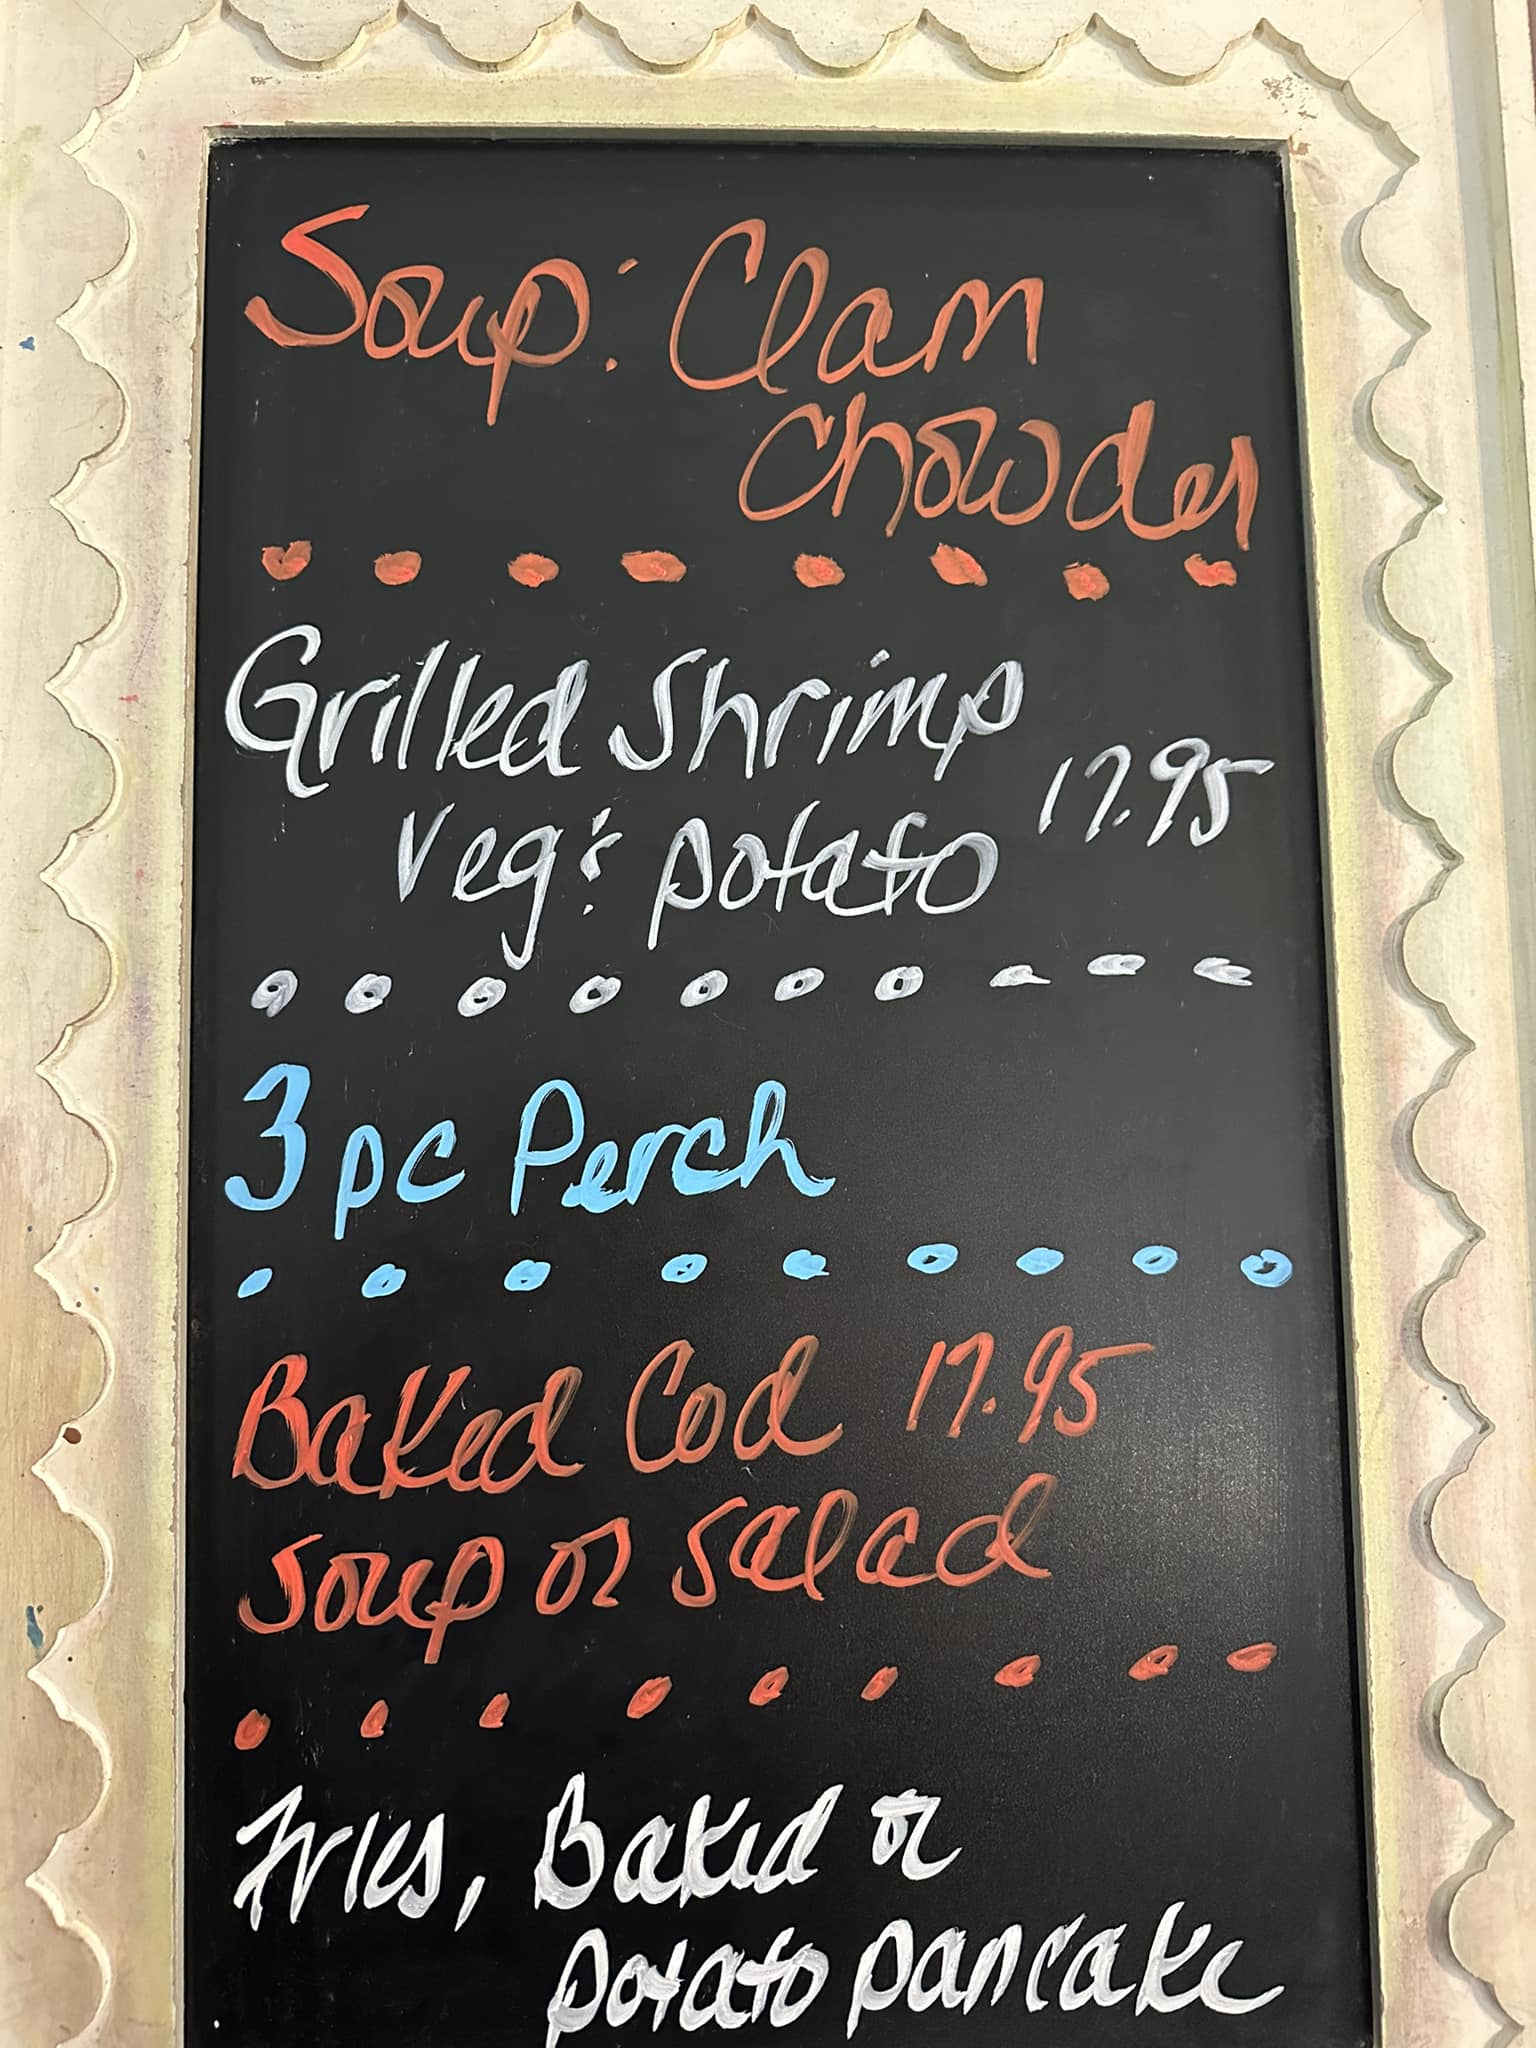 Soup: Clam
Chowder
Grilled Shrimp
Veg & potato 17.95
3 pc Perch
Baked Cod 17.95
Soup or Salad
Fries, Baked or
potato pancake